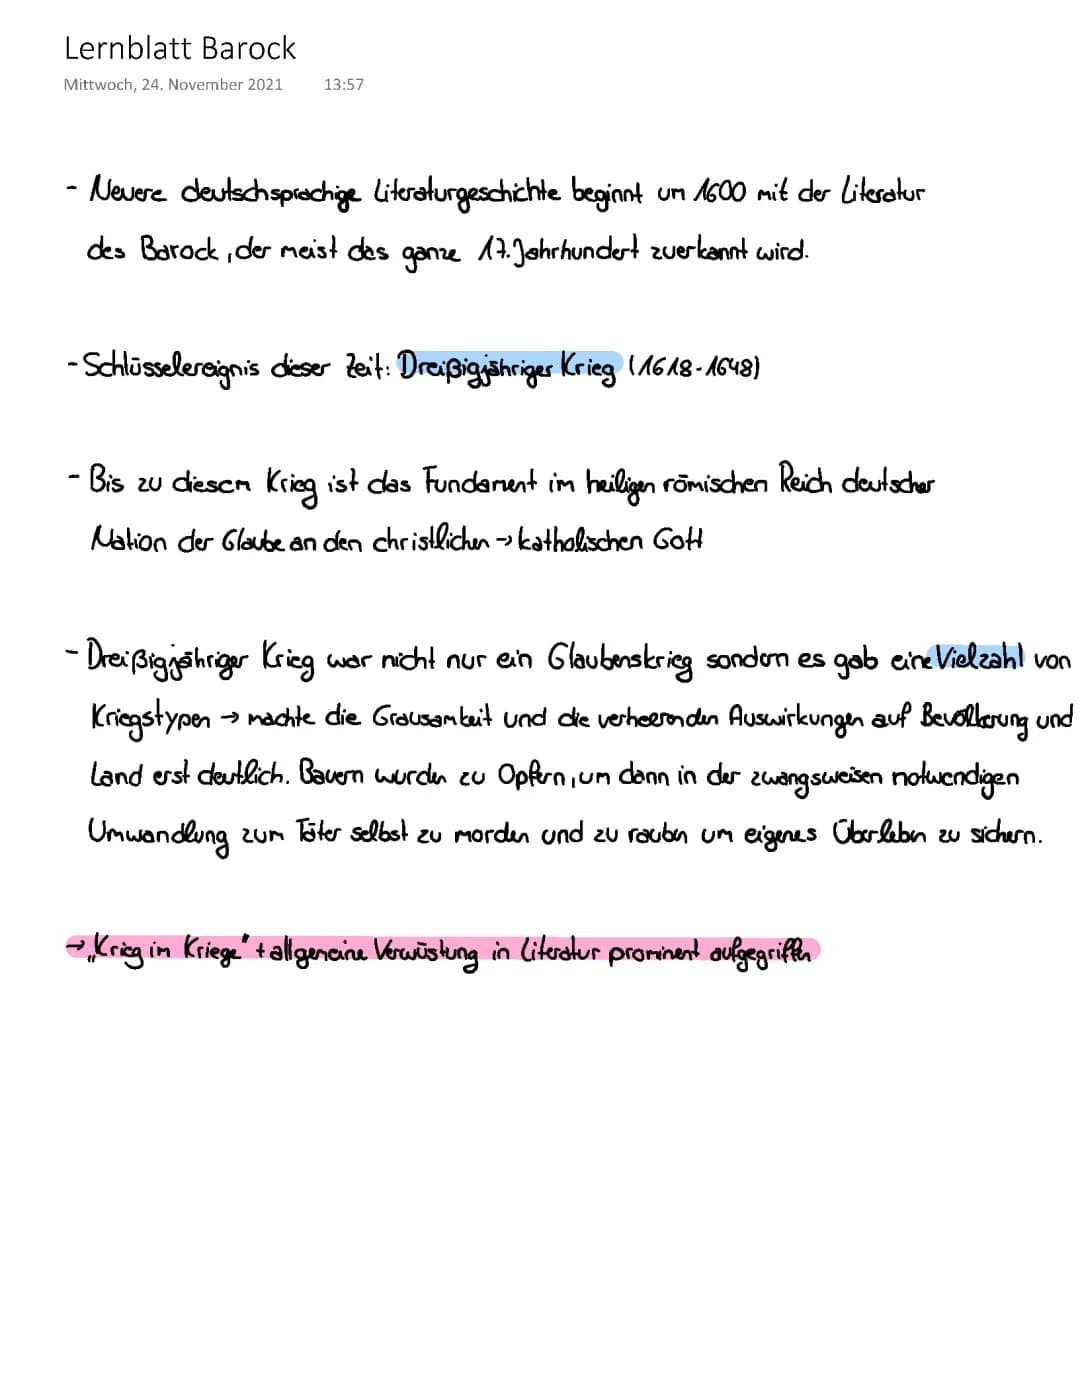 Lernblatt Barock
Mittwoch, 24. November 2021 13:57
- Neuere deutschsprachige Literaturgeschichte beginnt um 1600 mit der Literatur
des Barock, der meist das ganze 17. Jahrhundert zuerkannt wird.
- Schlüsselereignis dieser Zeit: Dreißigjähriger Krieg (1618-1648)
- Bis zu diesem Krieg ist das Fundament im heiligen römischen Reich deutscher
Nation der Glaube an den christlichen → katholischen Gott
- Dreißigjähriger Krieg war nicht nur ein Glaubenskrieg sondern es gab eine Vielzahl von
Kriegstypen → machte die Grausamkeit und die verheerenden Auswirkungen auf Bevölkerung und
Land erst deutlich. Bauern wurden zu Opfern, um dann in der zwangsweisen notwendigen
Umwandlung zum Täter selbst zu morden und zu rauben um eigenes Überleben zu sichern.
→ „Krieg im Kriege" + allgemeine Verwüstung in Literatur prominent aufgegriffen